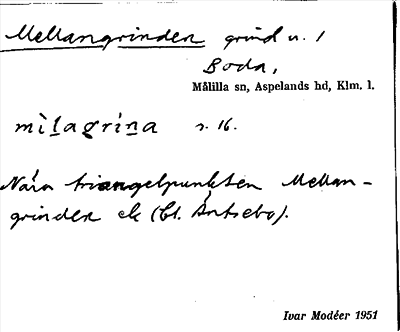 Mellangrinden grind n. 1
Boda,
Målilla sn, Aspelands hd, Klm. l.
mìlagrína s. 16.
Nära triangelpunkten Mellan-
grinden ek (bl. Äntsebo).
Ivar Modéer 1951